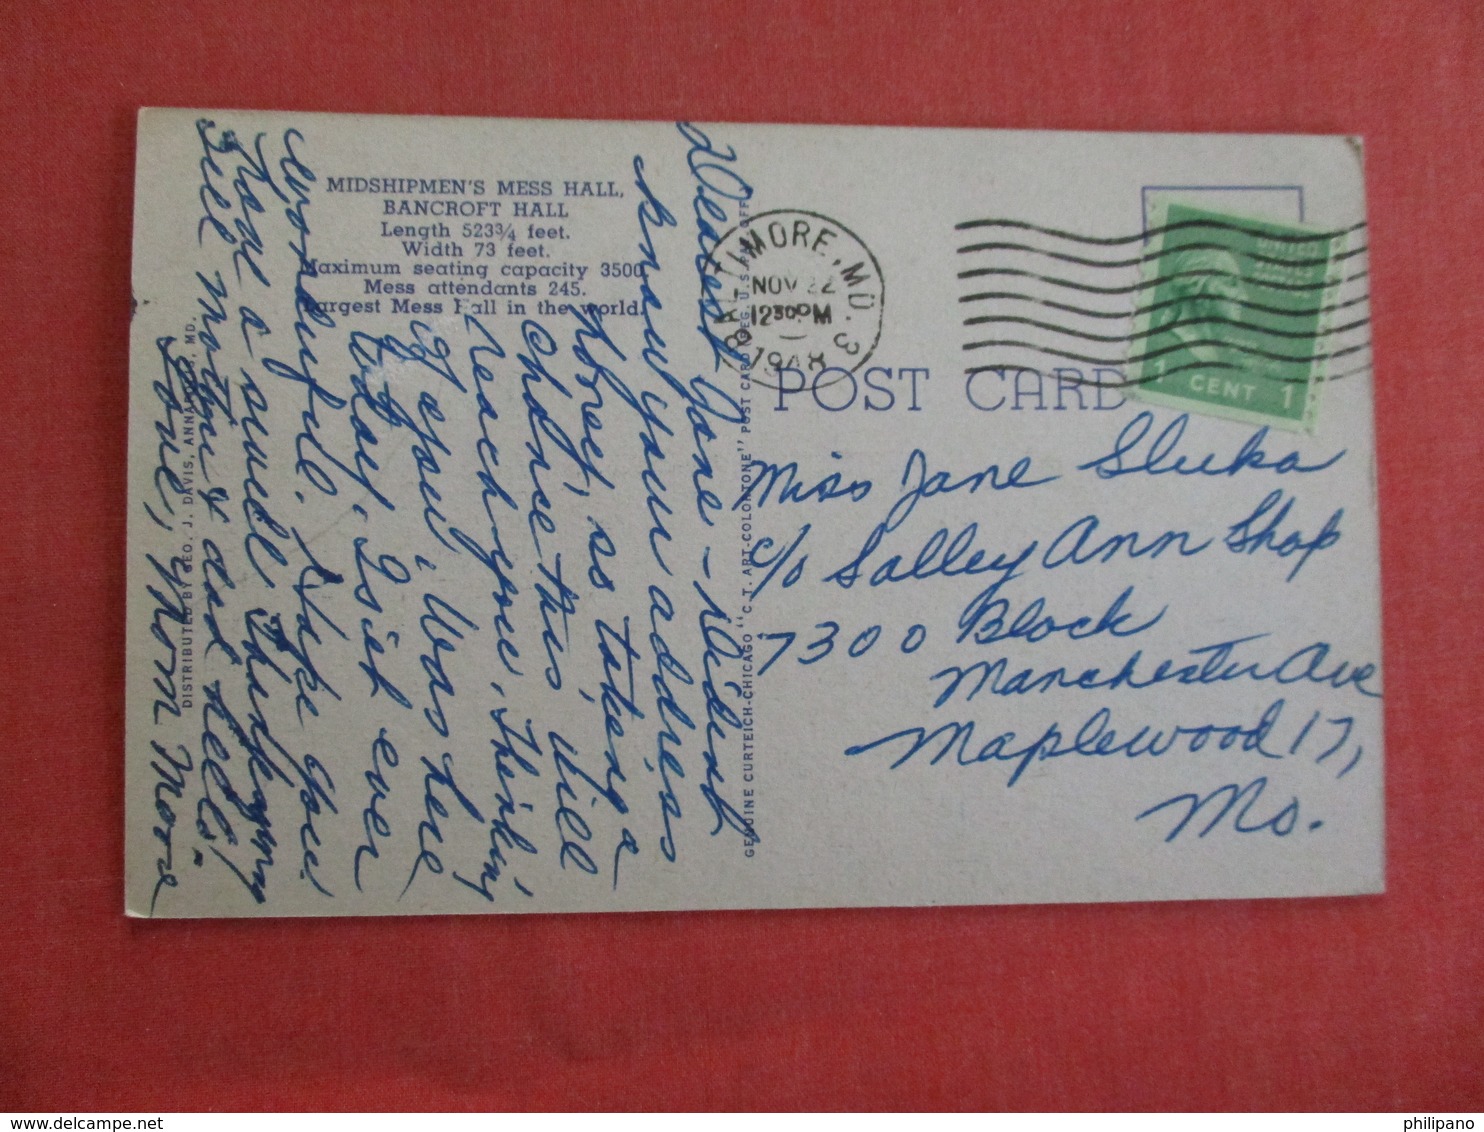 MIDSHIPMEN'S MESS HALL,
BANCROFT HALL
Length 523¾ feet.
Width 73 feet.
Maximum seating capacity 3500.
Mess attendants 245.
Largest Mess Hall in the world.
Dearest Jane - Didn't
know your address
honey, so taking a
chance this will
reach you. Thinking
of you. Was here
today. Is it ever
wonderful. Hope you
had a swell Thanksgiving
Tell mother & dad hello!
Love, Norm Moore
DISTRIBUTED BY GEO. J. DAVIS, ANNAPOLIS, MD.
GENUINE CURTEICH-CHICAGO "C. T. ART-COLORTONE" POST CARD (REG. U. S. PAT. OFF.)
BALTIMORE, MD. 3
NOV 22
1230PM
1948
UNITED
STATES
1 CENT 1
POST CARD
Miss Jane Sluka
c/o Salley Ann Shop
7300 Block
Manchester Ave
Maplewood 17,
Mo.
philipano